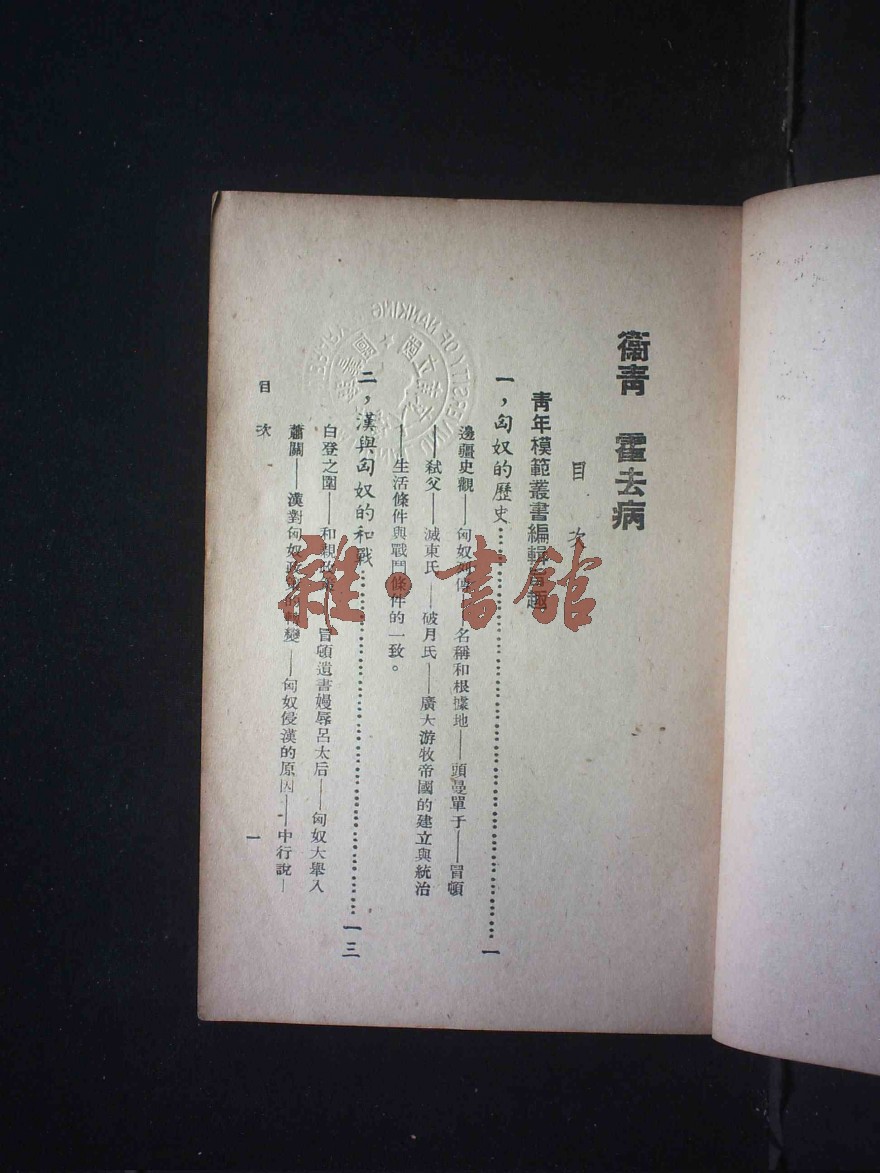 衞青　霍去病
目　次
青年模範叢書編輯旨趣
一，匈奴的歷史……一
邊疆史觀——匈奴列傳——名稱和根據地——頭曼單于——冒頓
——弒父——滅東氏——破月氏——廣大游牧帝國的建立與統治
——生活條件與戰鬥條件的一致。
二，漢與匈奴的和戰……一三
白登之圍——和親政策——冒頓遺書嫚辱呂太后——匈奴大舉入
蕭關——漢對匈奴政策的轉變——匈奴侵漢的原因——中行說—
目　次
一
雜·書館